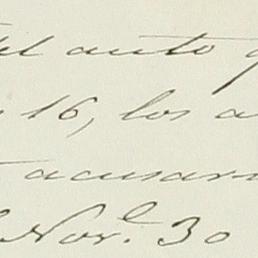 del auto q
16, los a
acusar
Nov.e 30